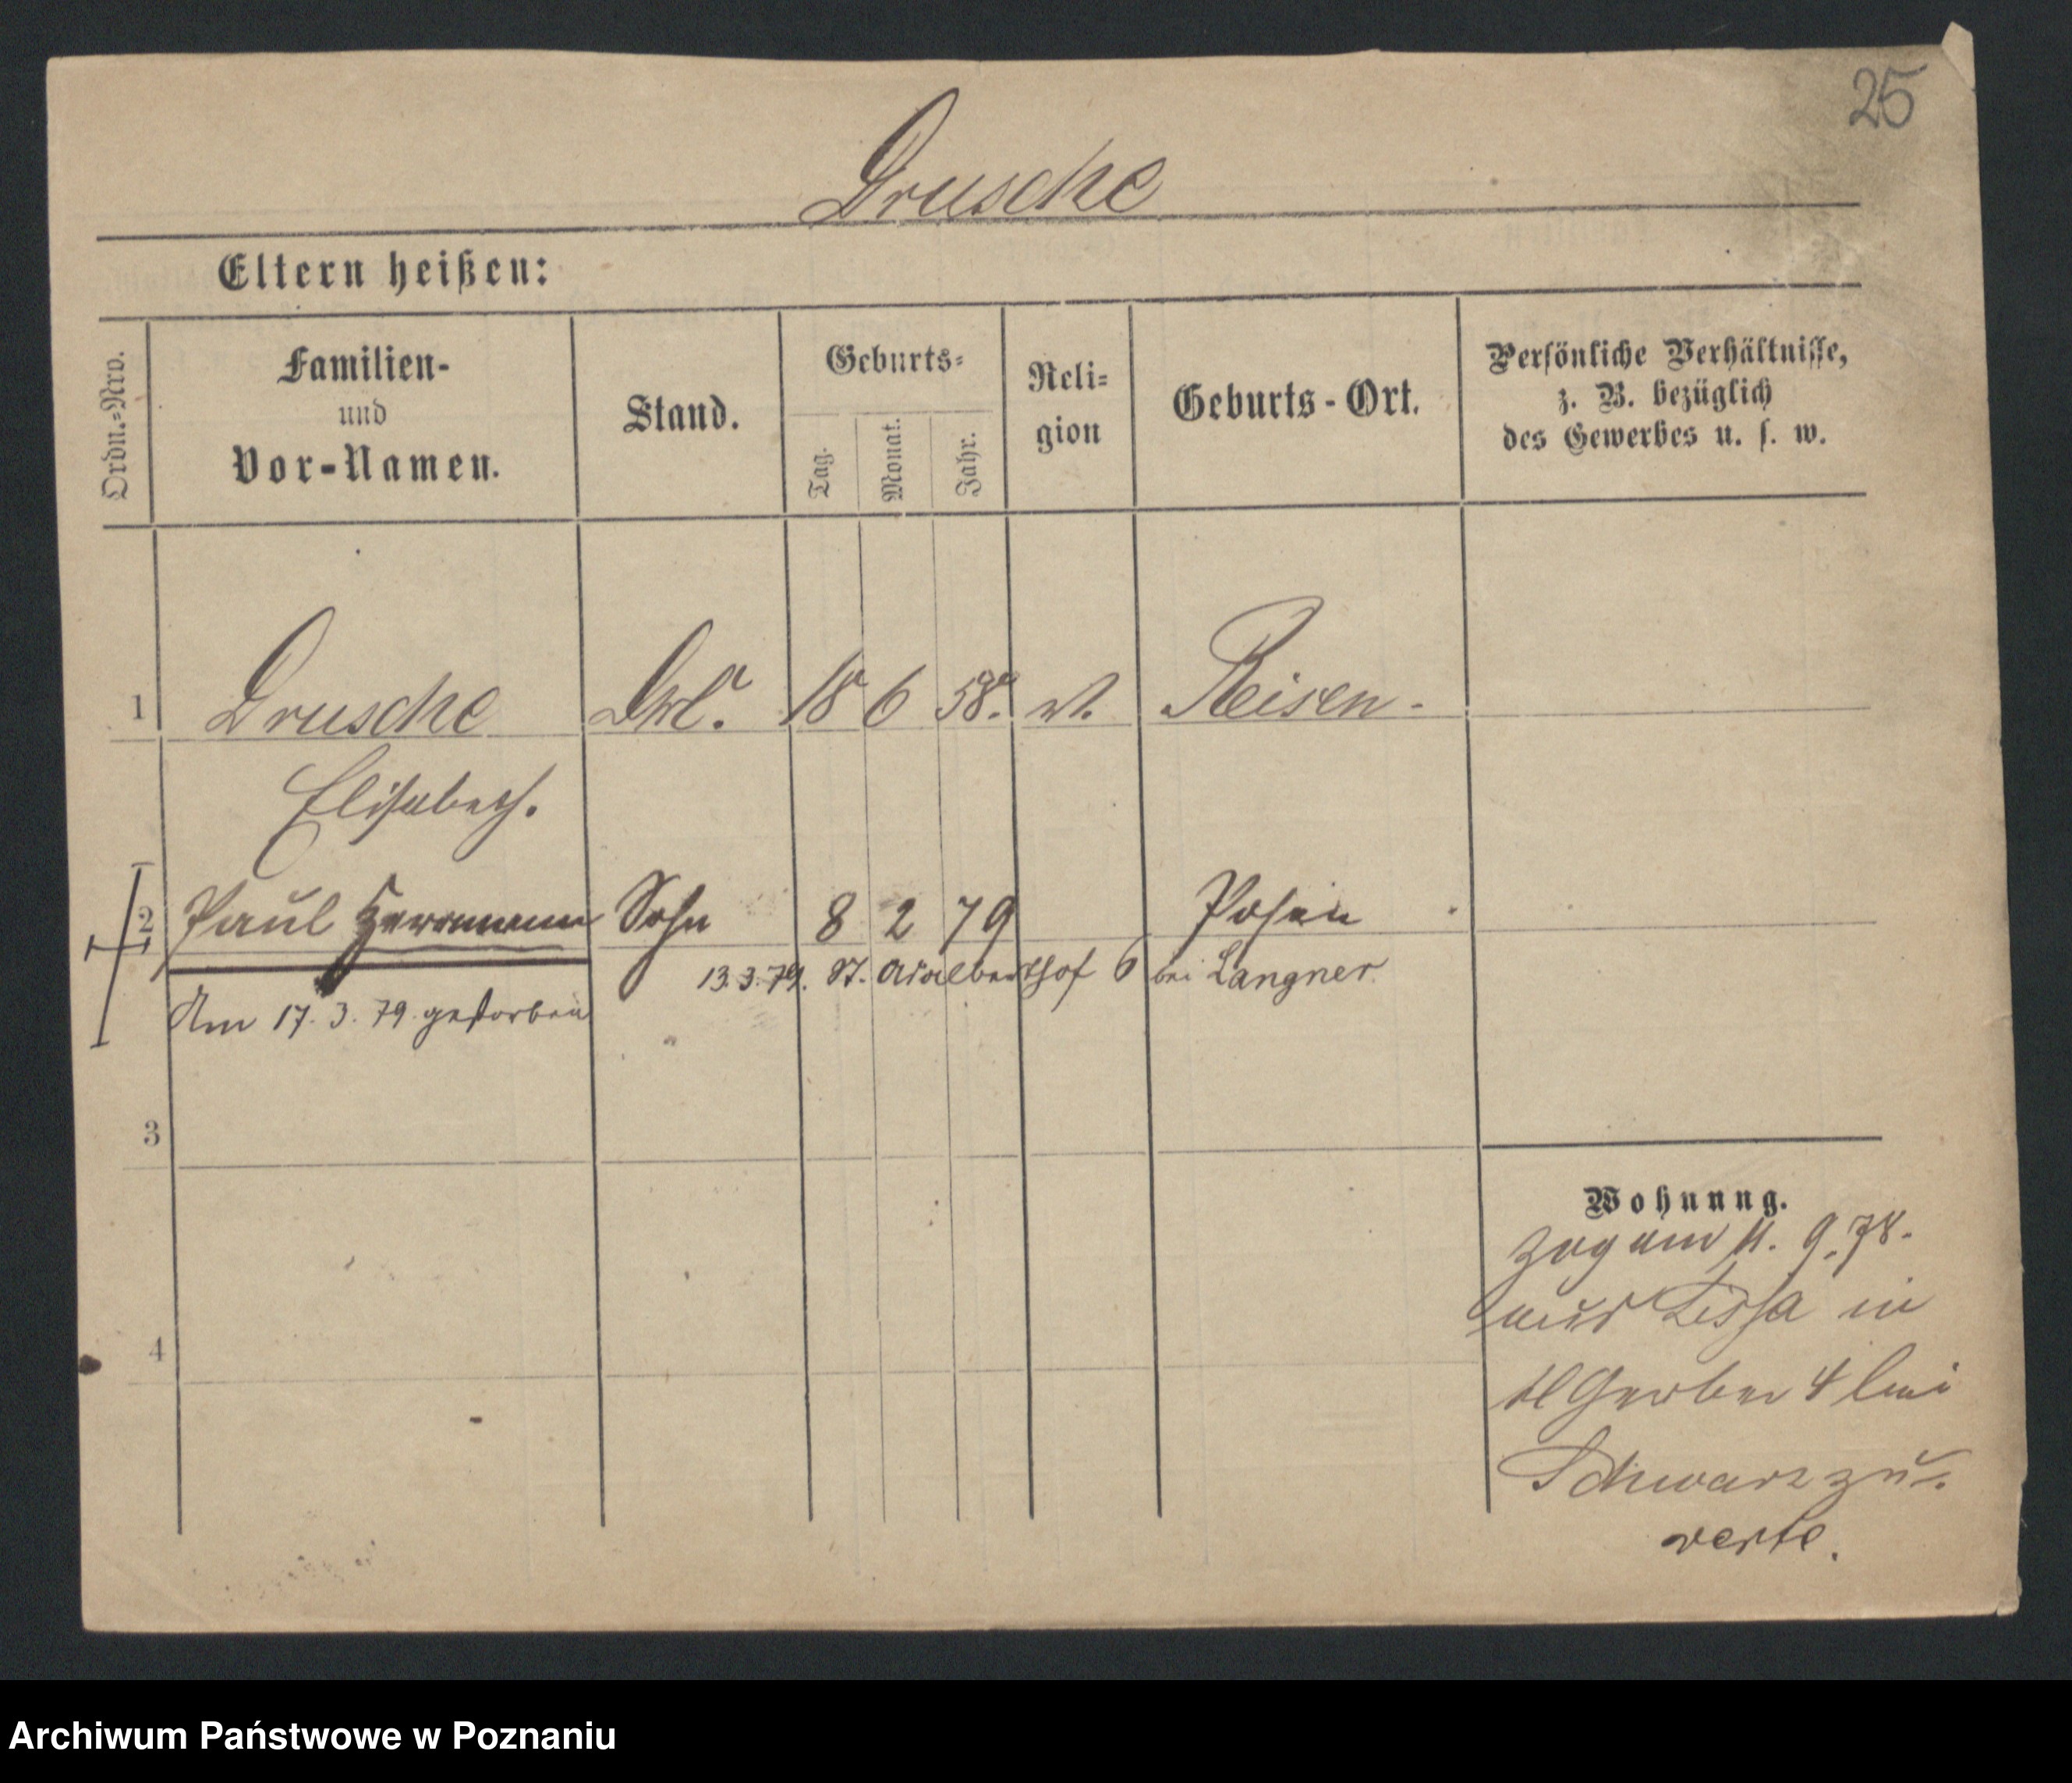 25
Drusche
Eltern heißen:
Ordn.-Nro.
Familien-
und
Vor-Namen.
Stand.
Geburts-
Tag.
Monat.
Jahr.
Reli-
gion
Geburts-Ort.
Persönliche Verhältnisse,
z. B. bezüglich
des Gewerbes u. s. w.
1 Drusche 18 6 58. Reisen.
Elisabeth.
2 Paul Herrmann Sohn 8 2 79 Posen
13.3.79. St. Adalberthof 6 bei Langner.
Am 17. 3. 79. gestorben
3
Wohnung.
zog am 11. 9. 78.
aus Lissa in
kl Gerber 4 bei
Schwarz zu.
4
verte.
Archiwum Państwowe w Poznaniu